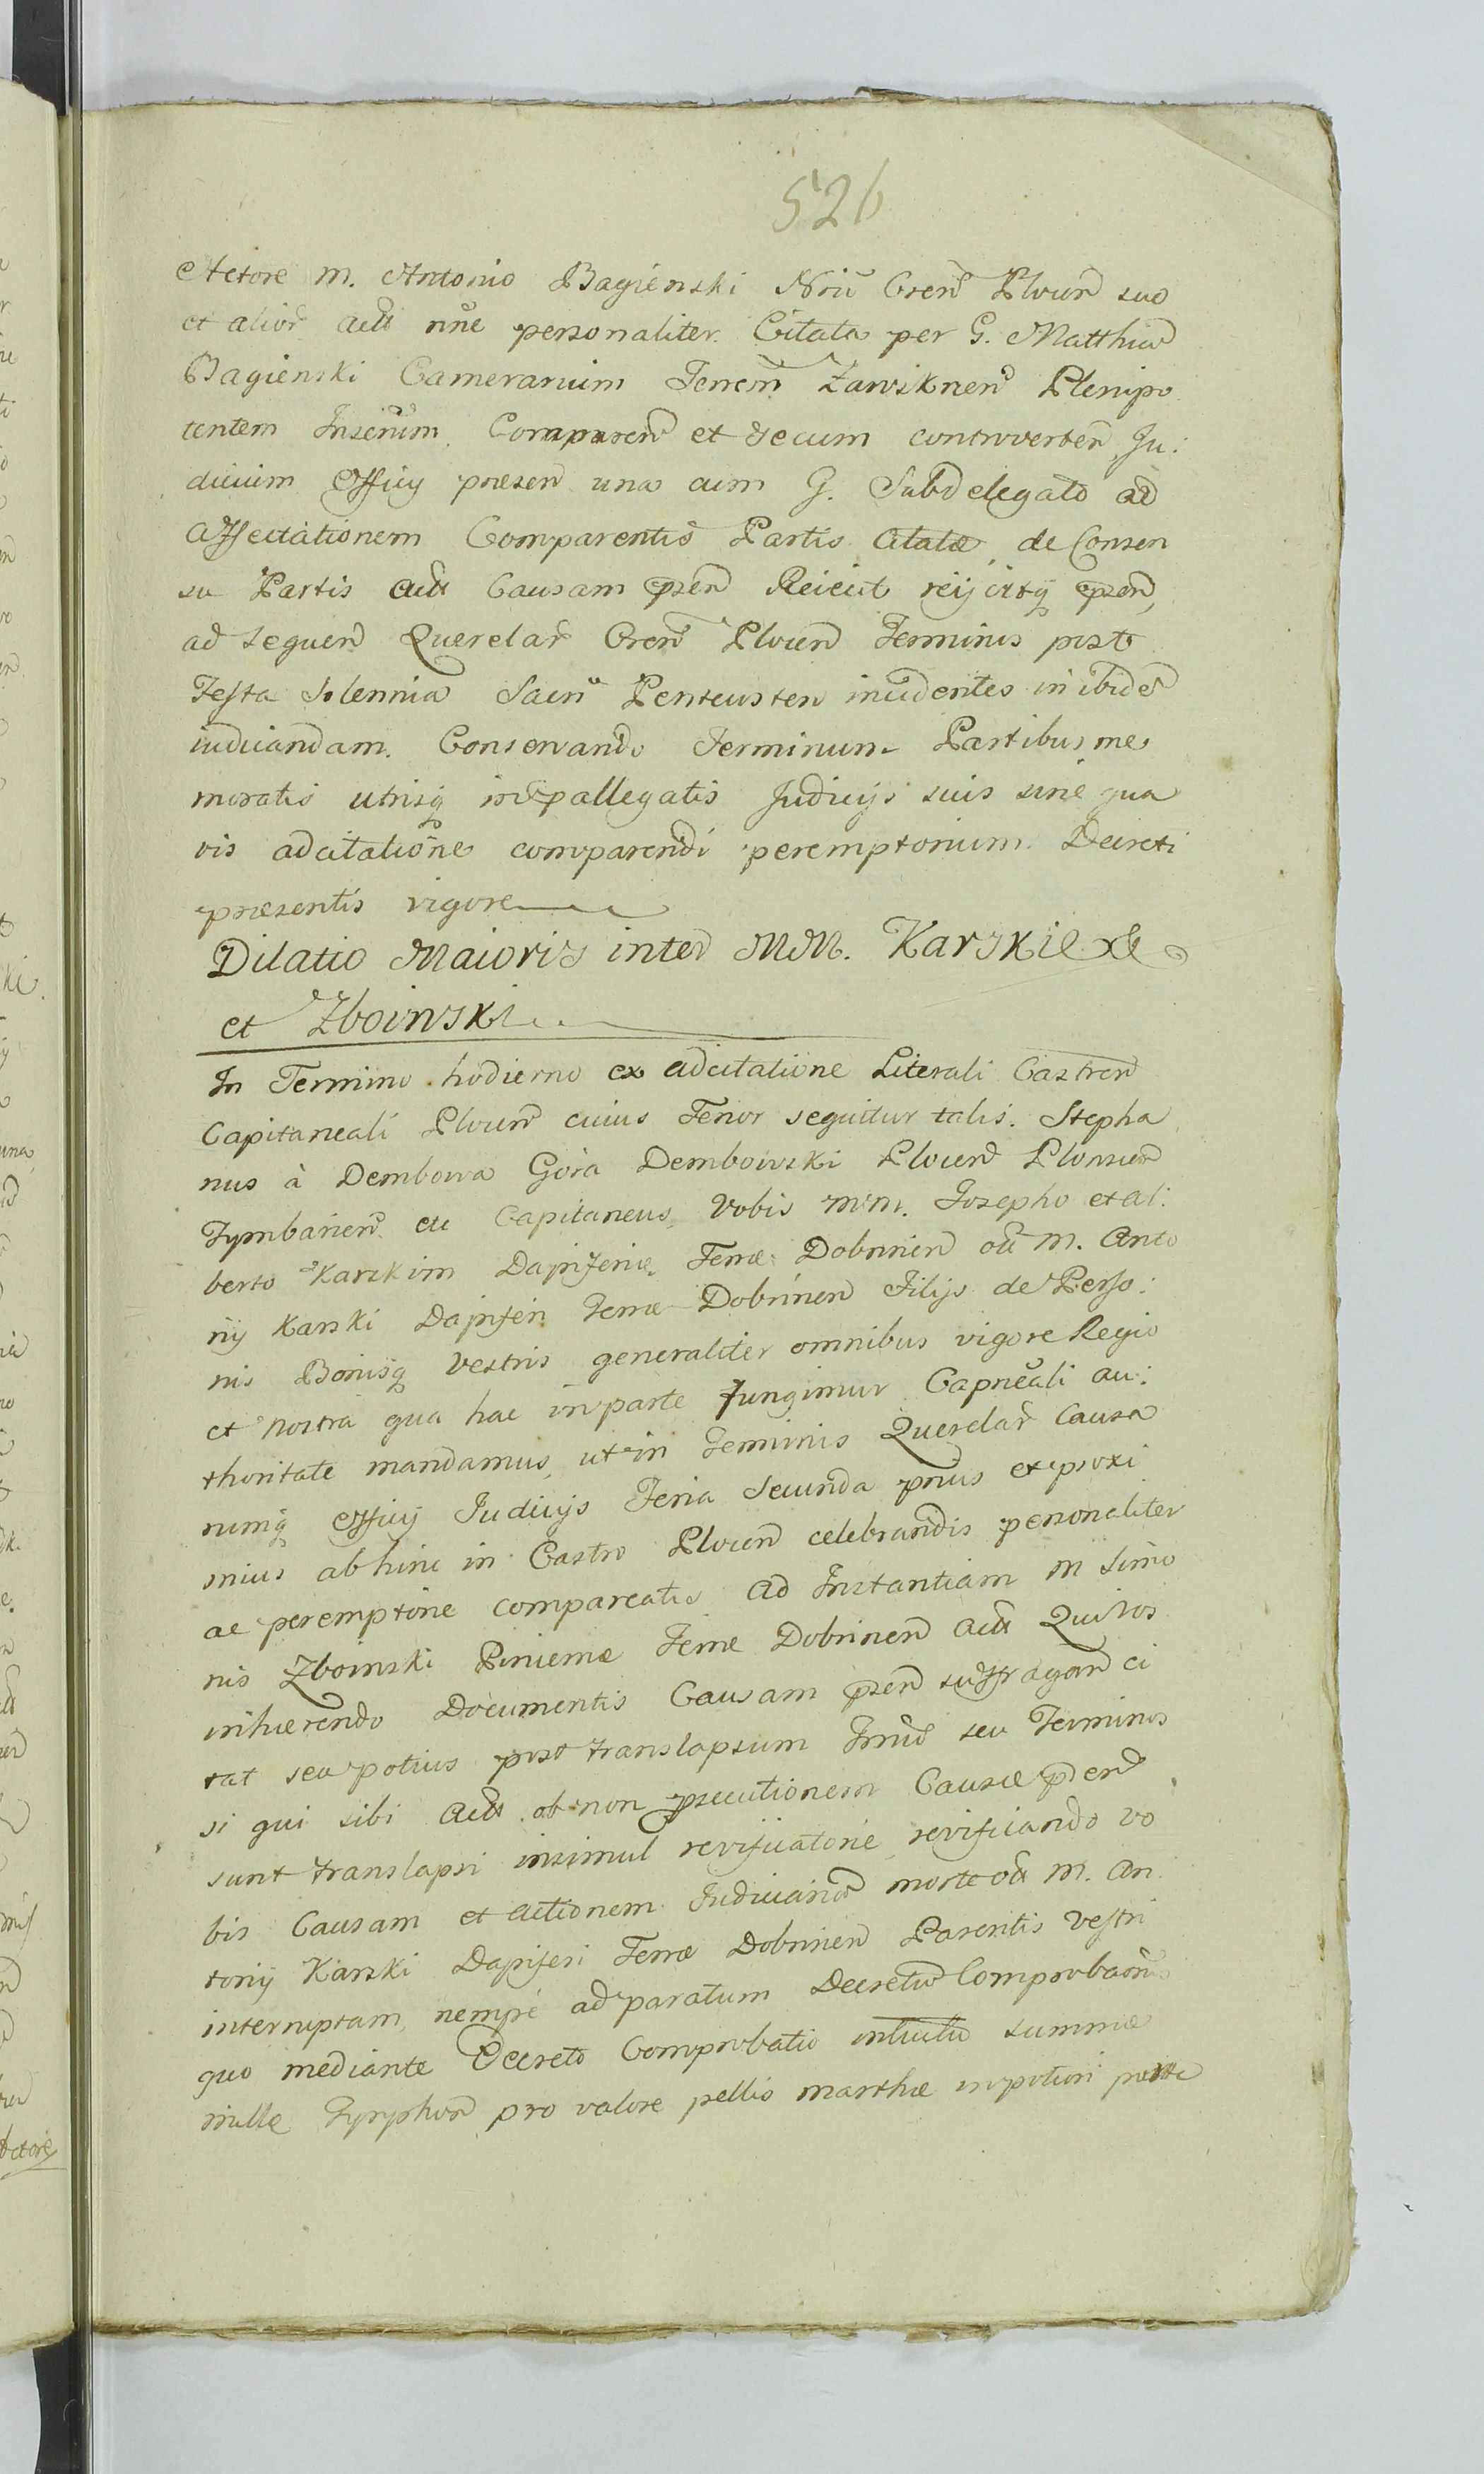 526
Actore M. Antonio Bagienski Nriũ Cren̄ Plocen̄ suo
et alior̄ act̄ nñe personaliter. Citata per G. Matthiam̄
Bagienski Camerarium Terren̄ Zawsknen̄ Plenipo
tentem Inserium. Comparen̄ et secum controverten̄, Ju:
dicium Officij præsen̄ una cum G. Subdelegato ad
affectationem Comparentis Partis Citatæ, de Consen
su Partis Act̄ Causam p̄sen̄ Reiecit reijcitq̨ p̄sen̄,
ad sequen̄ Querelar̄ Cren̄ Plocen̄ Terminos post
Festa Solennia Sacri Pentecosten incidentes in ibidē
iudicandam. Conservando Terminum Partibus me
moratis utrisq̨ in p̄allegatis Judicijs suis sine qua
vis adcitatiõne comparendi peremptorium. Decreti
præsentis vigore
Dilatio Maioris inter MM. Karskie
et Zboinski
In Termino hodierno ex adcitatione Literali Castren̄
Capitaneali Plocen̄ cuius Tenor sequitur talis. Stepha
nus à Dembowa Góra Dembowski Plocen̄ Plonscen̄
Tymbarien̄ etc Capitaneus, Vobis MM. Josepho et Al:
berto Karskim Dapiferis Terræ Dobrinen̄ oli M. Anto
nij Karski Dapiferi Terræ Dobrinen̄ Filijs de Perso:
nis Bonisq̨ Vestris generaliter omnibus vigore Regio
et Nostrâ qua hac in parte fungimur Capneali au:
thoritate mandamus, ut in Terminis Querelar̄ Causa
rumq̨ Officij Judicijs Feria Secunda p̄rius et proxi
mius abhinc in Castro Plocen̄ celebrandis personaliter
ac peremptorie compareatis ad Instantiam M Simo
nis Zboinski Pincernæ Terræ Dobrinen̄ Act̄ Qui vos
inhærendo Documentis Causam p̄sen̄ suffragan̄ ci
tat seu potius post translapsum Trnū seu Terminos
si qui sibi Act̄ ob non p̄secutionem Causæ p̄sen̄
sunt translapsi insimul revificatorie, revificando vo
bis Causam et actionem Judiciariam morte oli M. An
tonij Karski Dapiferi Terræ Dobrinen̄ Parentis Vestri
interruptam, nempè ad paratum Decretum Comprobaõnis
quo mediante Decreto Comprobatio intuitu summæ
mille Tynphor̄ pro valore pellis marthæ